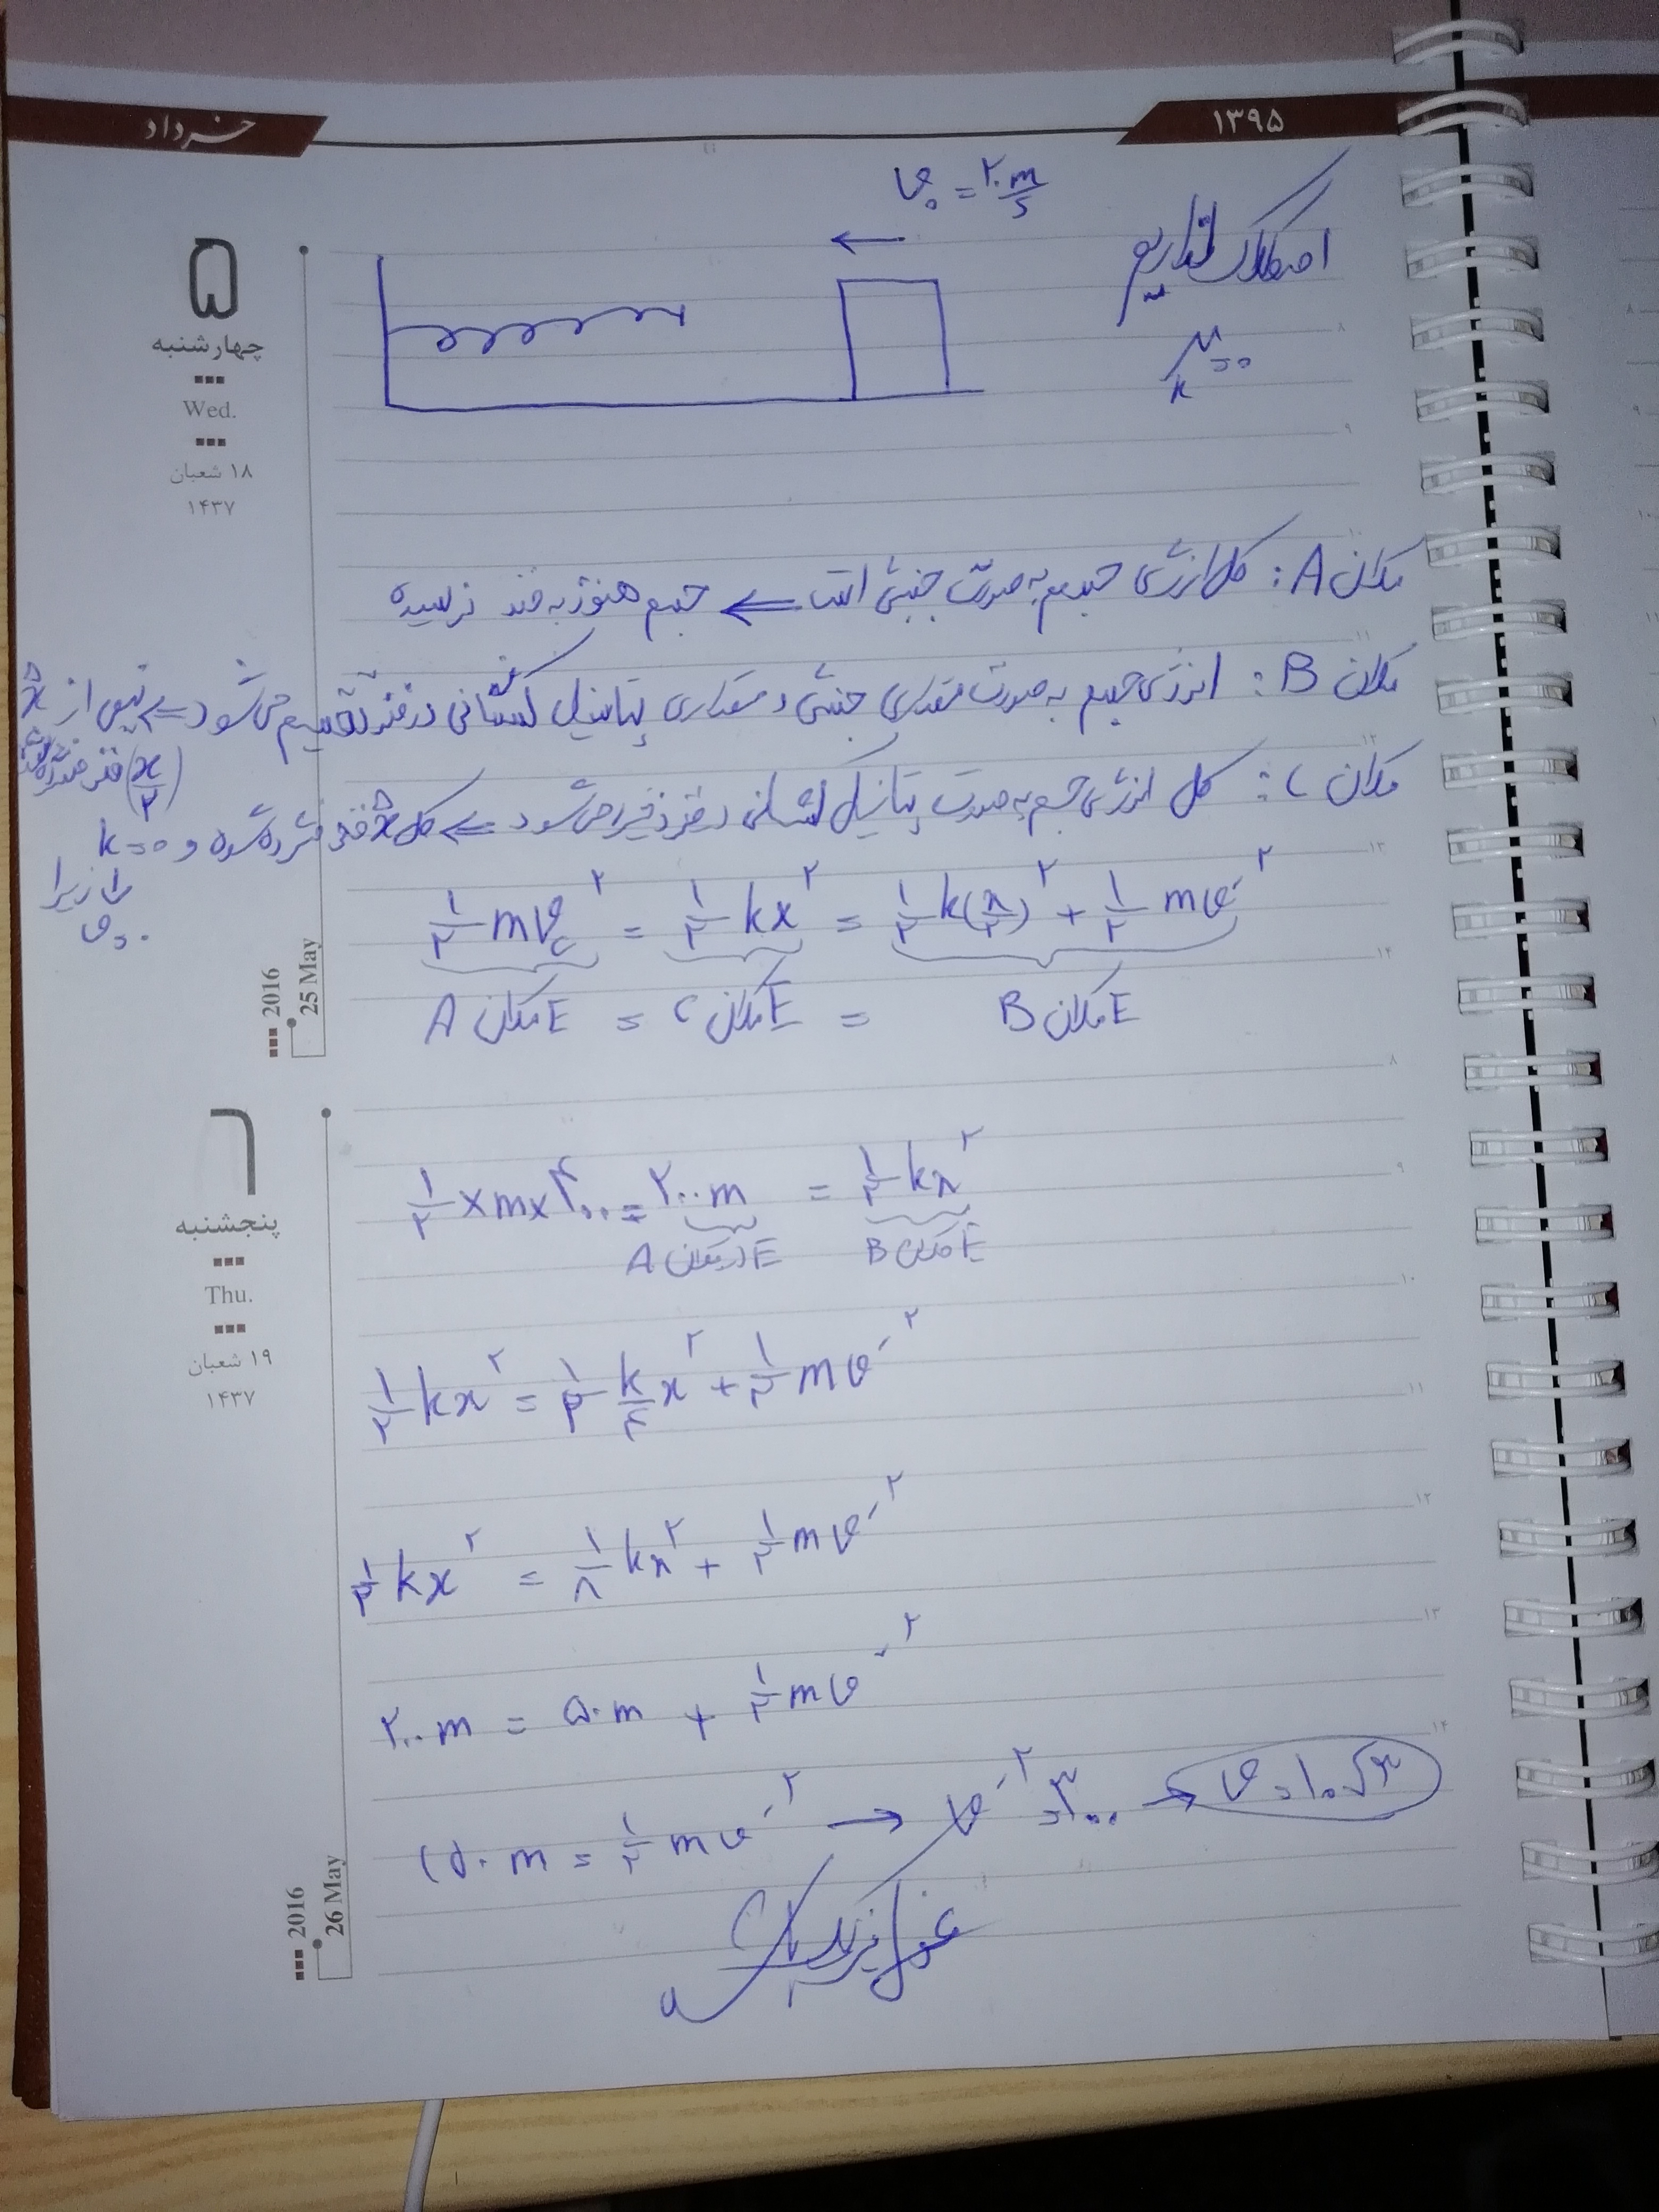 خرداد
۱۳۹۵
۵
چهارشنبه
Wed.
۱۸ شعبان
۱۴۳۷
2016
25 May
v₀ = ۲۰ m/s
اصطکاک نداریم
μk = ۰
مکان A: کل انرژی جسم به صورت جنبشی است ⇐ جسم هنوز به فنر نرسیده
مکان B: انرژی جسم به صورت مقداری جنبشی و مقداری پتانسیل کشسانی در فنر تقسیم می‌شود ⇐ نیمی از x
(x/۲) فنر فشرده شده
مکان C: کل انرژی جسم به صورت پتانسیل کشسانی در فنر ذخیره می‌شود ⇐ کل x فنر فشرده شده و k=۰
زیرا
v=۰
۱/۲ mv₀² = ۱/۲ kx² = ۱/۲ k(x/۲)² + ۱/۲ mv′²
E مکان A = E مکان C = E مکان B
۶
پنجشنبه
Thu.
۱۹ شعبان
۱۴۳۷
2016
26 May
۱/۲ × m × ۴۰۰ = ۲۰۰m = ۱/۲ kx²
E در مکان A E مکان B
۱/۲ kx² = ۱/۲ k/۴ x² + ۱/۲ mv′²
۱/۲ kx² = ۱/۸ kx² + ۱/۲ mv′²
۲۰۰m = ۵۰m + ۱/۲ mv′²
۱۵۰m = ۱/۲ mv′² → v′² = ۳۰۰ → v = ۱۰√۳